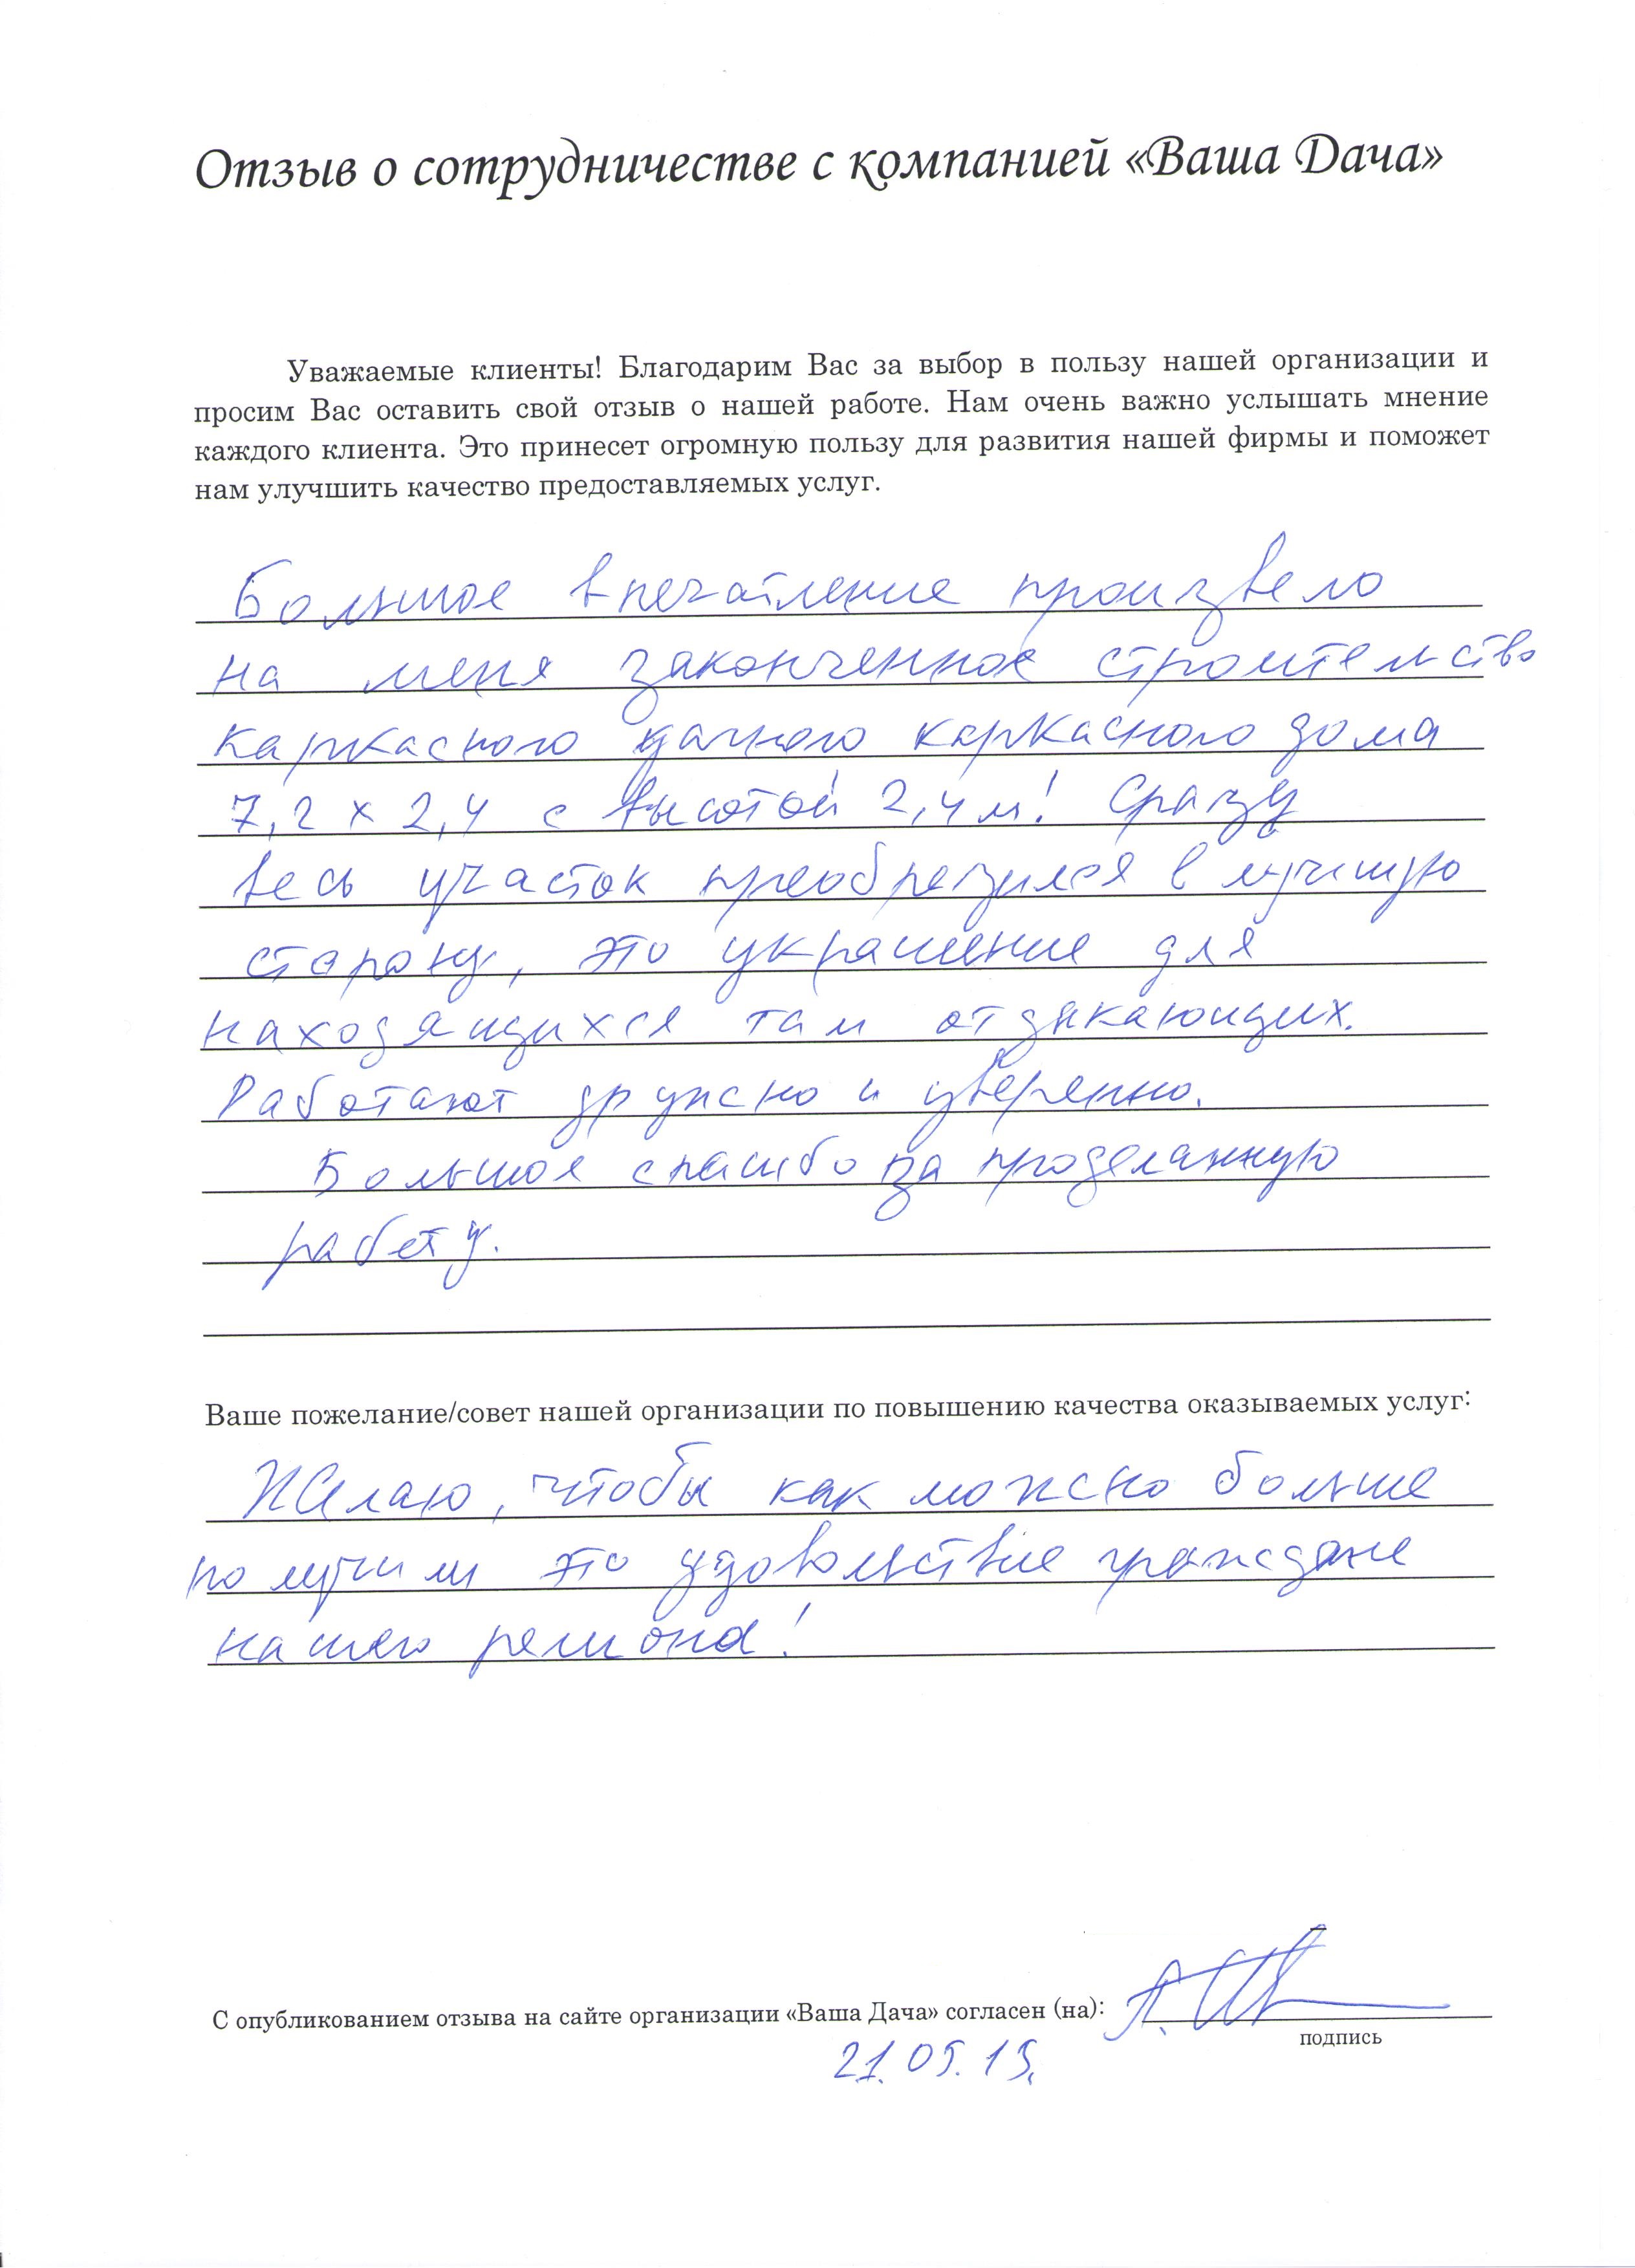 Отзыв о сотрудничестве с компанией «Ваша Дача»
Уважаемые клиенты! Благодарим Вас за выбор в пользу нашей организации и
просим Вас оставить свой отзыв о нашей работе. Нам очень важно услышать мнение
каждого клиента. Это принесет огромную пользу для развития нашей фирмы и поможет
нам улучшить качество предоставляемых услуг.
Большое впечатление произвело
на меня законченное строительство
каркасного дачного каркасного дома
7,2 х 2,4 с высотой 2,4 м! Сразу
весь участок преобразился в лучшую
сторону, это украшение для
находящихся там отдыхающих.
Работают дружно и уверенно.
Большое спасибо за проделанную
работу.
Ваше пожелание/совет нашей организации по повышению качества оказываемых услуг:
Желаю, чтобы как можно больше
получили это удовольствие граждане
нашего региона!
С опубликованием отзыва на сайте организации «Ваша Дача» согласен (на):
подпись
21.05.15.